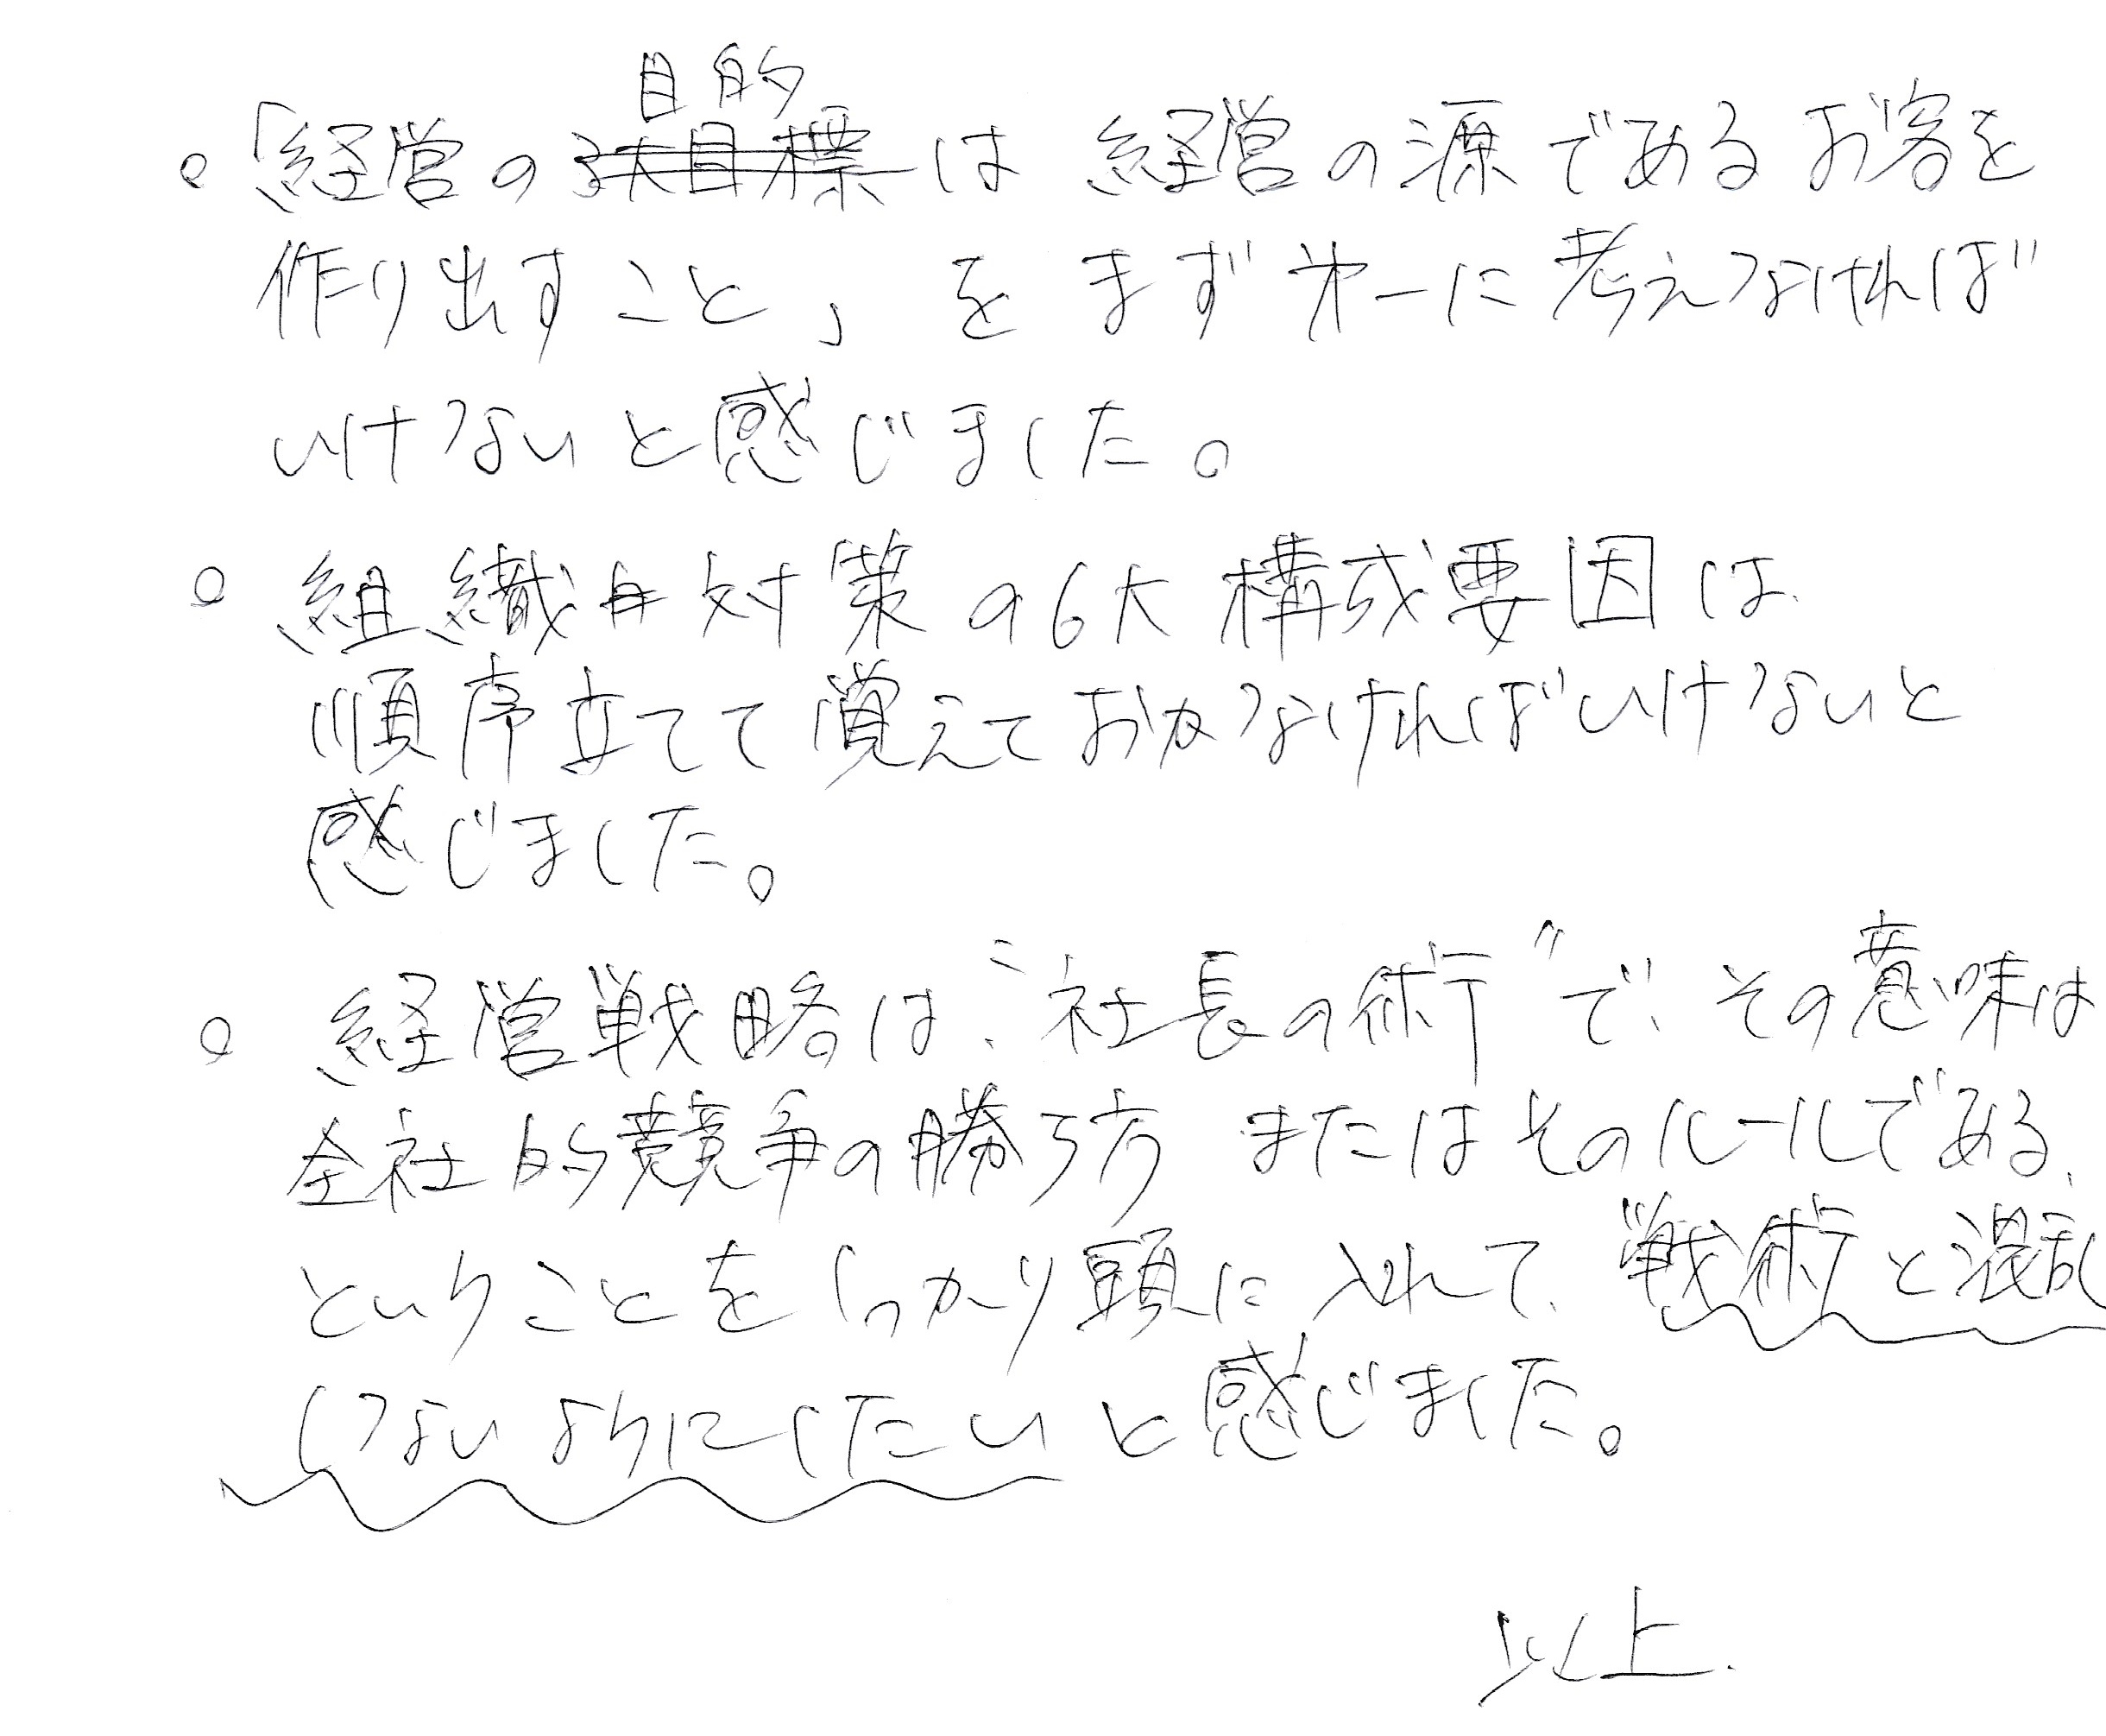 目的
。「経営の3大目標は 経営の源であるお客を
作り出すこと」をまず才一に考えなければ
いけないと感じました。
。組織対策の6大構成要因は
順序立てて覚えておかなければいけないと
感じました。
。経営戦略は、"社長の術"で、その意味は
全社的競争の勝ち方 またはそのルールである、
ということをしっかり頭に入れて、戦術と混乱
しないようにしたいと感じました。
以上.